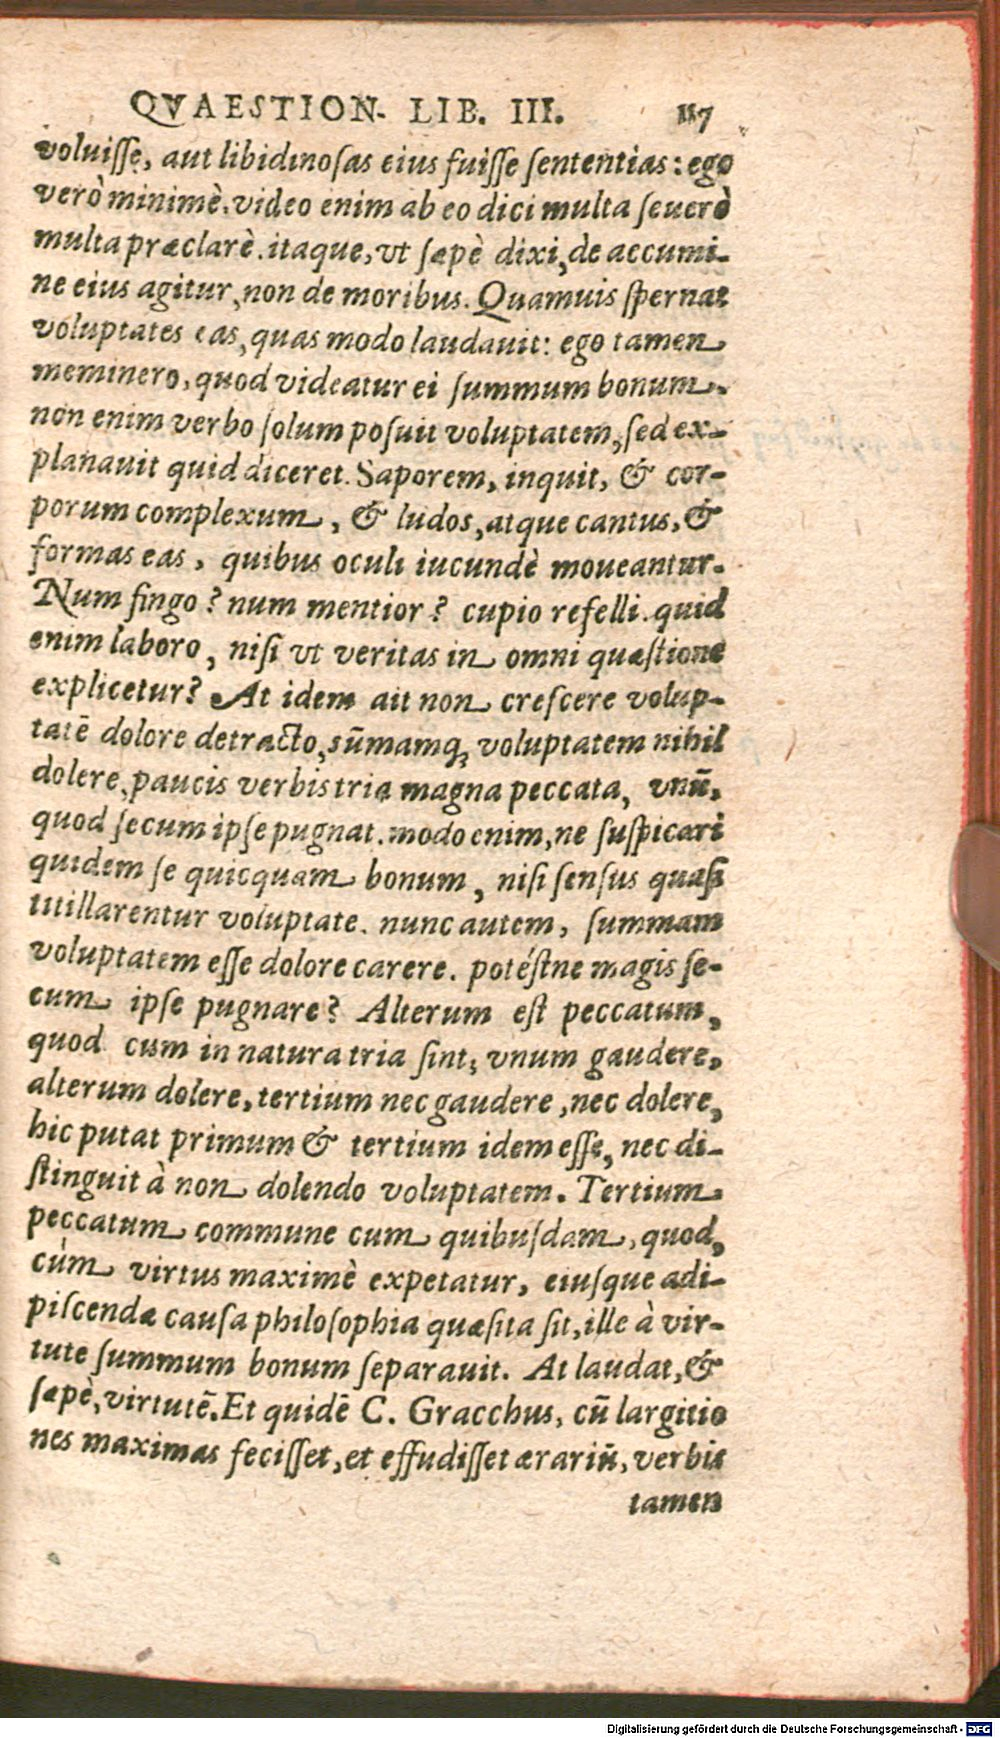 QVAESTION. LIB. III. 117
voluiſſe, aut libidinoſas eius fuiſſe ſententias: ego
verò minimè. video enim ab eo dici multa ſeuerè
multa præclarè. itaque, vt ſæpè dixi, de accumi-
ne eius agitur, non de moribus. Quamuis ſpernat
voluptates eas, quas modo laudauit: ego tamen
meminero, quod videatur ei ſummum bonum.
non enim verbo ſolum poſuit voluptatem, ſed ex-
planauit quid diceret. Saporem, inquit, & cor-
porum complexum, & ludos, atque cantus, &
formas eas, quibus oculi iucundè moueantur.
Num fingo? num mentior? cupio refelli. quid
enim laboro, niſi vt veritas in omni quæſtione
explicetur? At idem ait non creſcere volup-
tatē dolore detracto, sūmamq; voluptatem nihil
dolere, paucis verbis tria magna peccata, vnū,
quod ſecum ipſe pugnat. modo enim, ne ſuſpicari
quidem se quicquam bonum, niſi ſenſus quaſi
titillarentur voluptate. nunc autem, ſummam
voluptatem eſſe dolore carere. potéſtne magis ſe-
cum ipſe pugnare? Alterum eſt peccatum,
quod cum in natura tria ſint, vnum gaudere,
alterum dolere, tertium nec gaudere, nec dolere,
hic putat primum & tertium idem eſſe, nec di-
ſtinguit à non dolendo voluptatem. Tertium
peccatum commune cum quibuſdam, quod,
cùm virtus maximè expetatur, eiuſque adi-
piſcendæ cauſa philoſophia quæſita ſit, ille à vir-
tute ſummum bonum ſeparauit. At laudat, &
ſæpè, virtutē. Et quidē C. Gracchus, cū largitio
nes maximas feciſſet, et effudiſſet ærariū, verbis
tamen
Digitalisierung gefördert durch die Deutsche Forschungsgemeinschaft - DFG